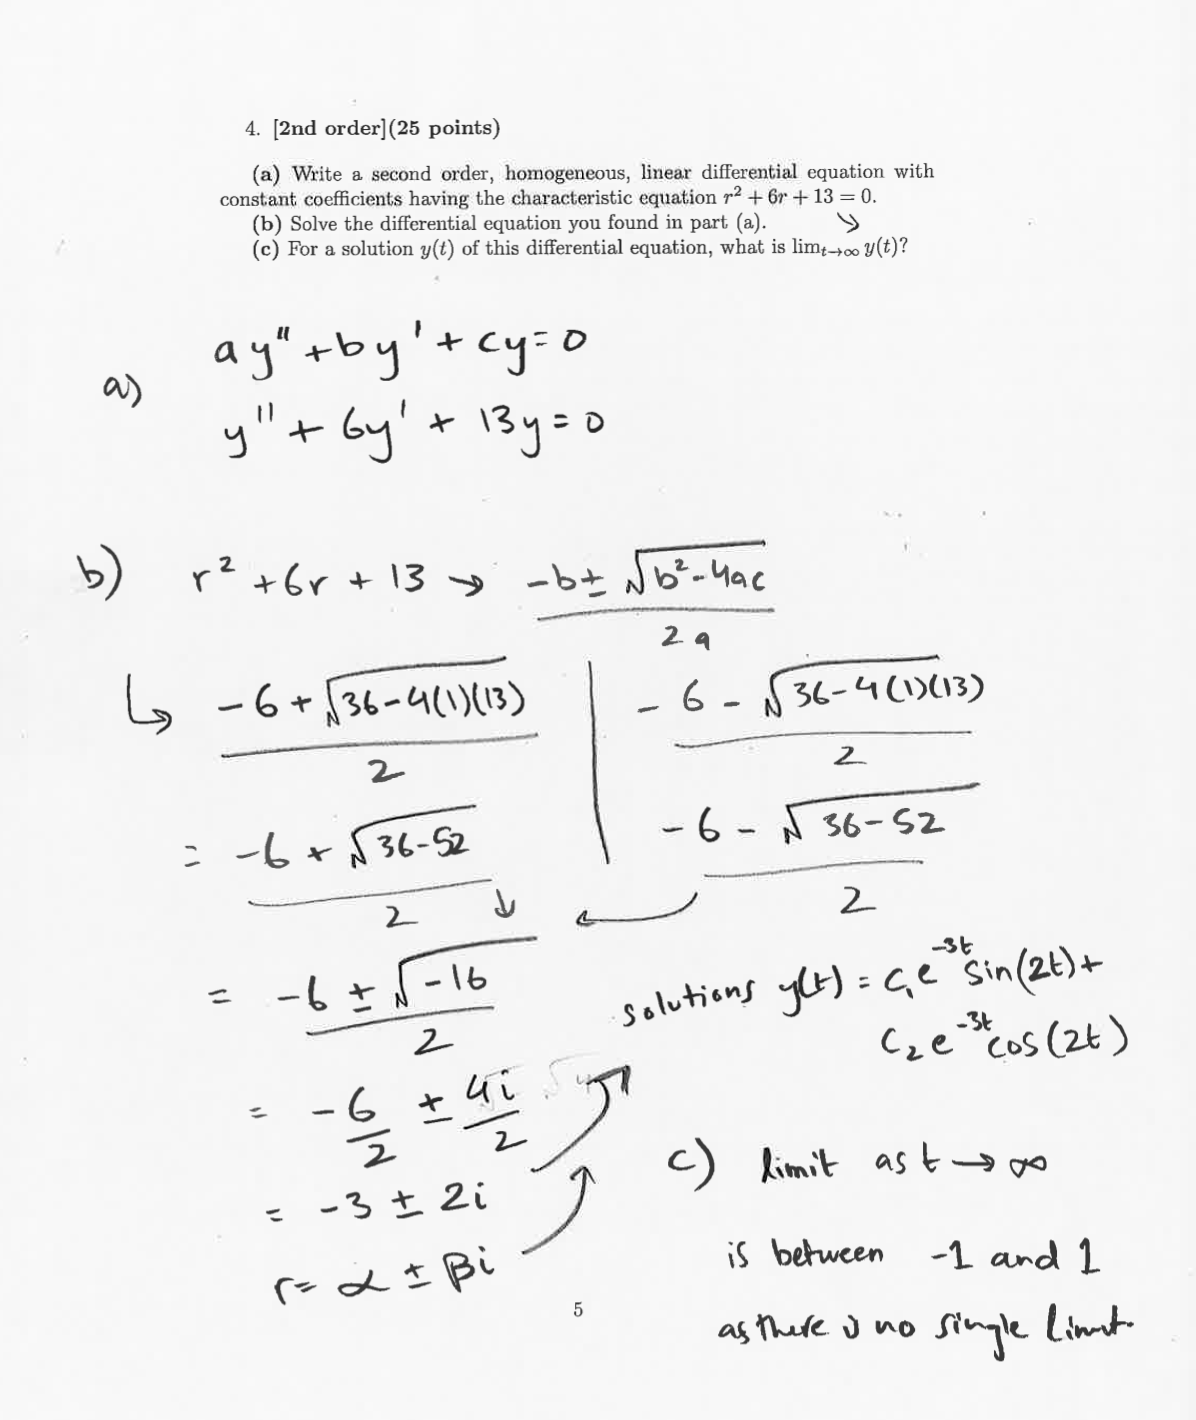 4. [2nd order](25 points)
(a) Write a second order, homogeneous, linear differential equation with
constant coefficients having the characteristic equation r² + 6r + 13 = 0.
(b) Solve the differential equation you found in part (a).
(c) For a solution y(t) of this differential equation, what is lim_{t→∞} y(t)?
a)
ay" + by' + cy = 0
y'' + 6y' + 13y = 0
b) r² + 6r + 13 → (-b ± √(b² - 4ac)) / 2a
↳ (-6 + √(36 - 4(1)(13))) / 2 | (-6 - √(36 - 4(1)(13))) / 2
= (-6 + √(36 - 52)) / 2 | (-6 - √(36 - 52)) / 2
= (-6 ± √(-16)) / 2
= -6/2 ± 4i/2
= -3 ± 2i
r = α ± βi
solutions y(t) = c₁e^{-3t} sin(2t) +
c₂e^{-3t} cos(2t)
c) limit as t → ∞
is between -1 and 1
as there is no single limit.
5